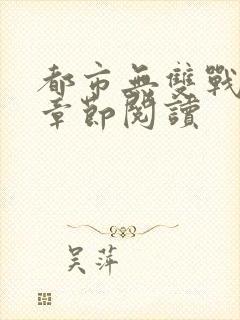 都市無雙戰
章節閱讀
吴萍